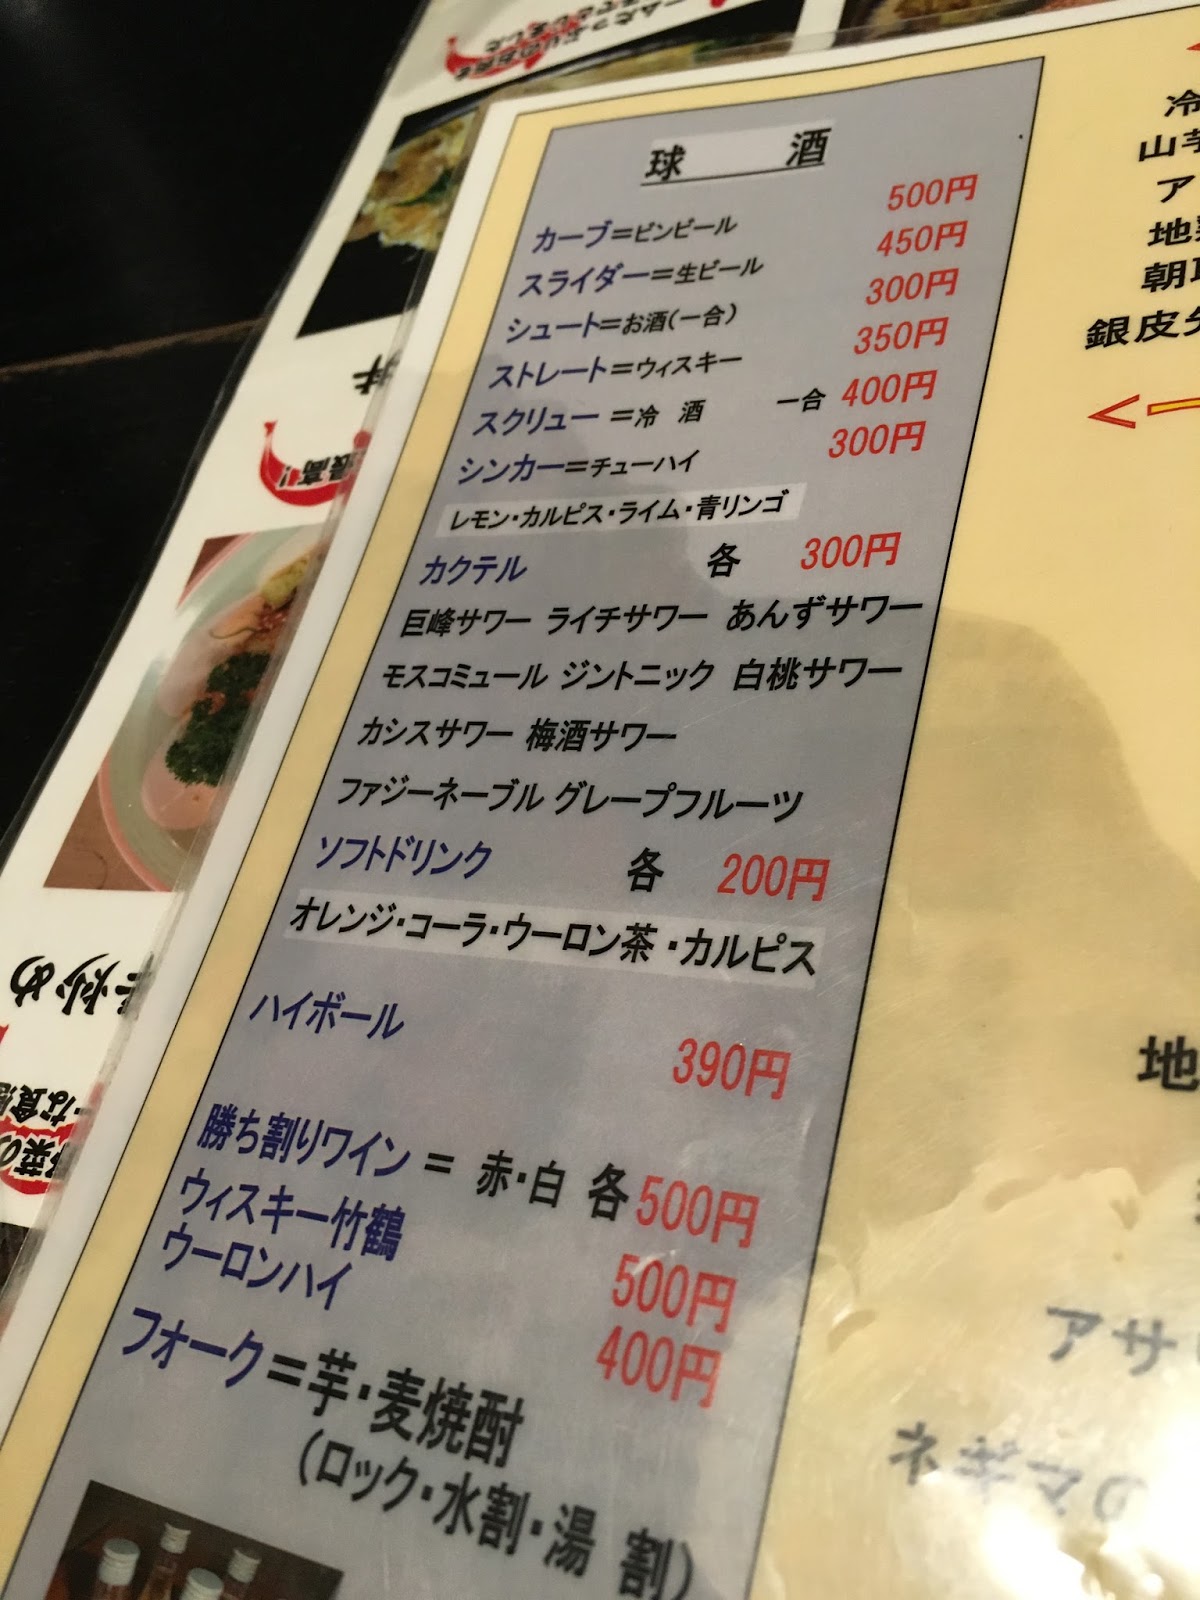 球 酒
カーブ=ビンビール 500円
スライダー=生ビール 450円
シュート=お酒(一合) 300円
ストレート=ウィスキー 350円
スクリュー =冷 酒 一合 400円
シンカー=チューハイ 300円
レモン・カルピス・ライム・青リンゴ
カクテル 各 300円
巨峰サワー ライチサワー あんずサワー
モスコミュール ジントニック 白桃サワー
カシスサワー 梅酒サワー
ファジーネーブル グレープフルーツ
ソフトドリンク 各 200円
オレンジ・コーラ・ウーロン茶 ・カルピス
ハイボール 390円
勝ち割りワイン = 赤・白 各 500円
ウィスキー竹鶴 500円
ウーロンハイ 400円
フォーク=芋・麦焼酎
(ロック・水割・湯 割)
冷
山芋
ア
地
朝
銀皮
地
アサ
ネギマの
丼
最高!
炒め